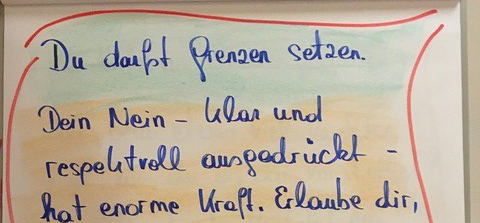 Du darfst Grenzen setzen.
Dein Nein – klar und
respektvoll ausgedrückt –
hat enorme Kraft. Erlaube dir,